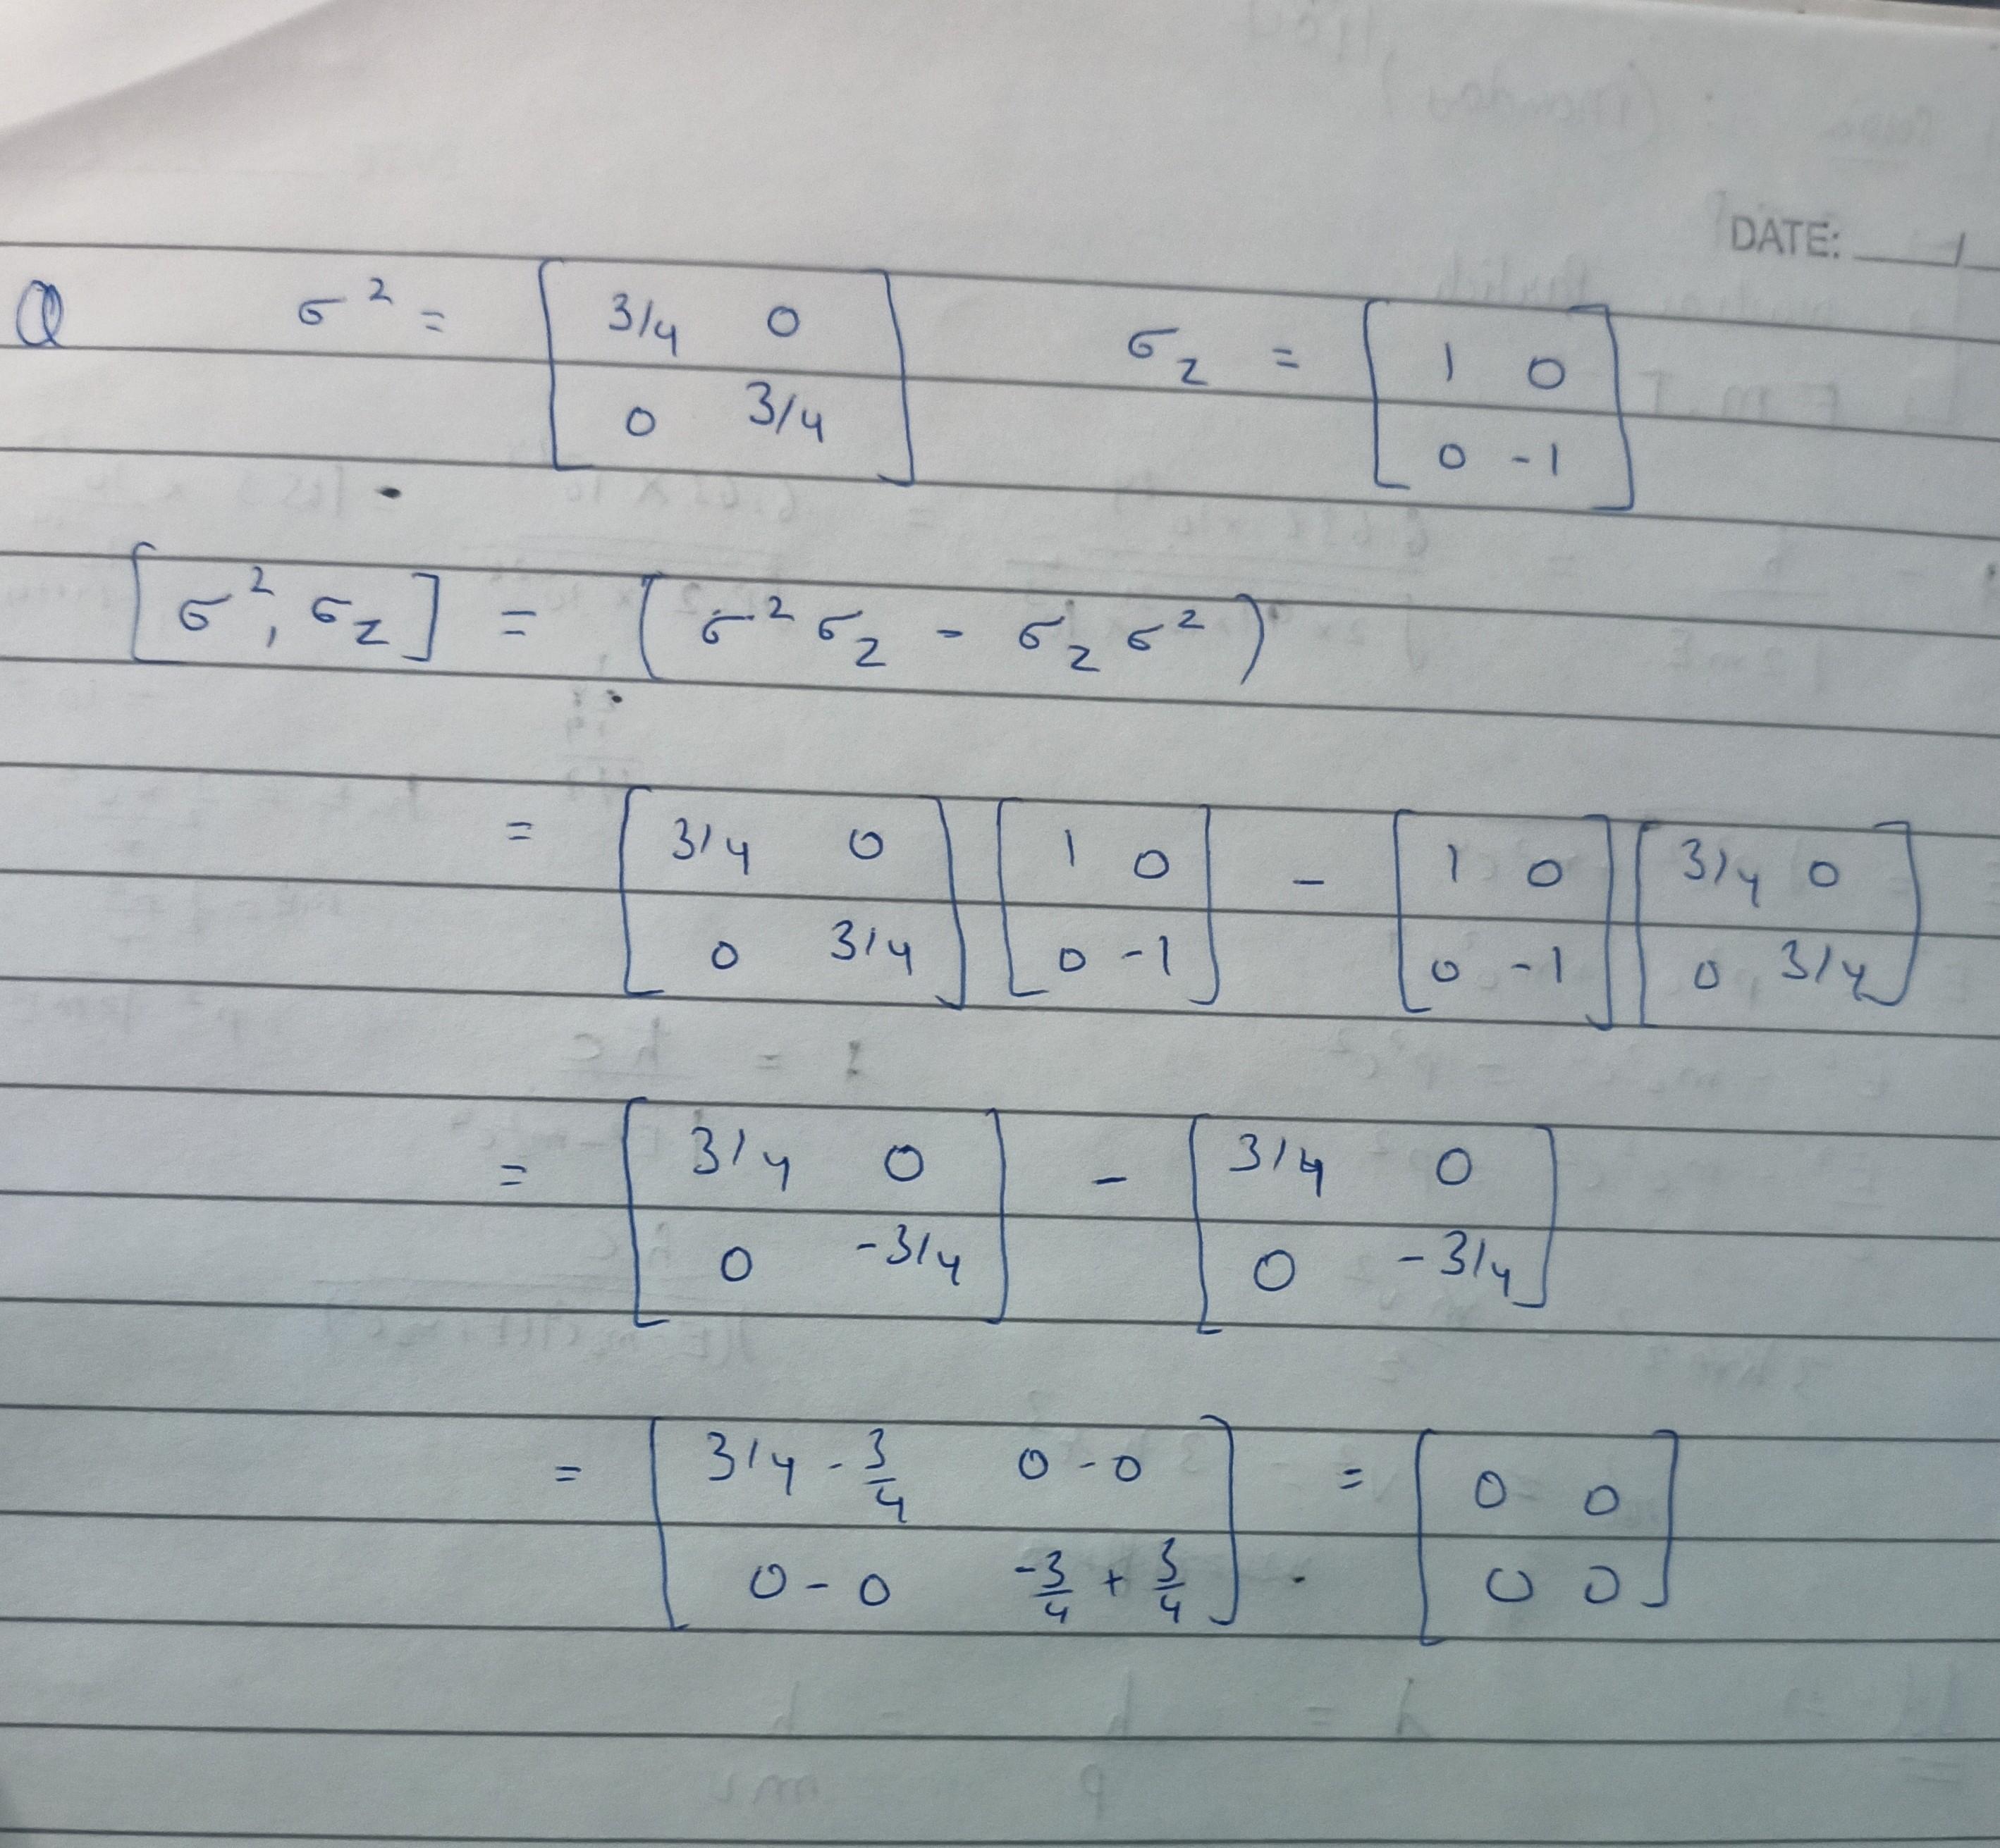 DATE: ___/
Q σ² = [ 3/4 0 ; 0 3/4 ] σz = [ 1 0 ; 0 -1 ]
[σ², σz] = (σ² σz - σz σ²)
= [ 3/4 0 ; 0 3/4 ] [ 1 0 ; 0 -1 ] - [ 1 0 ; 0 -1 ] [ 3/4 0 ; 0 3/4 ]
= [ 3/4 0 ; 0 -3/4 ] - [ 3/4 0 ; 0 -3/4 ]
= [ 3/4 - 3/4 0 - 0 ; 0 - 0 -3/4 + 3/4 ] = [ 0 0 ; 0 0 ]